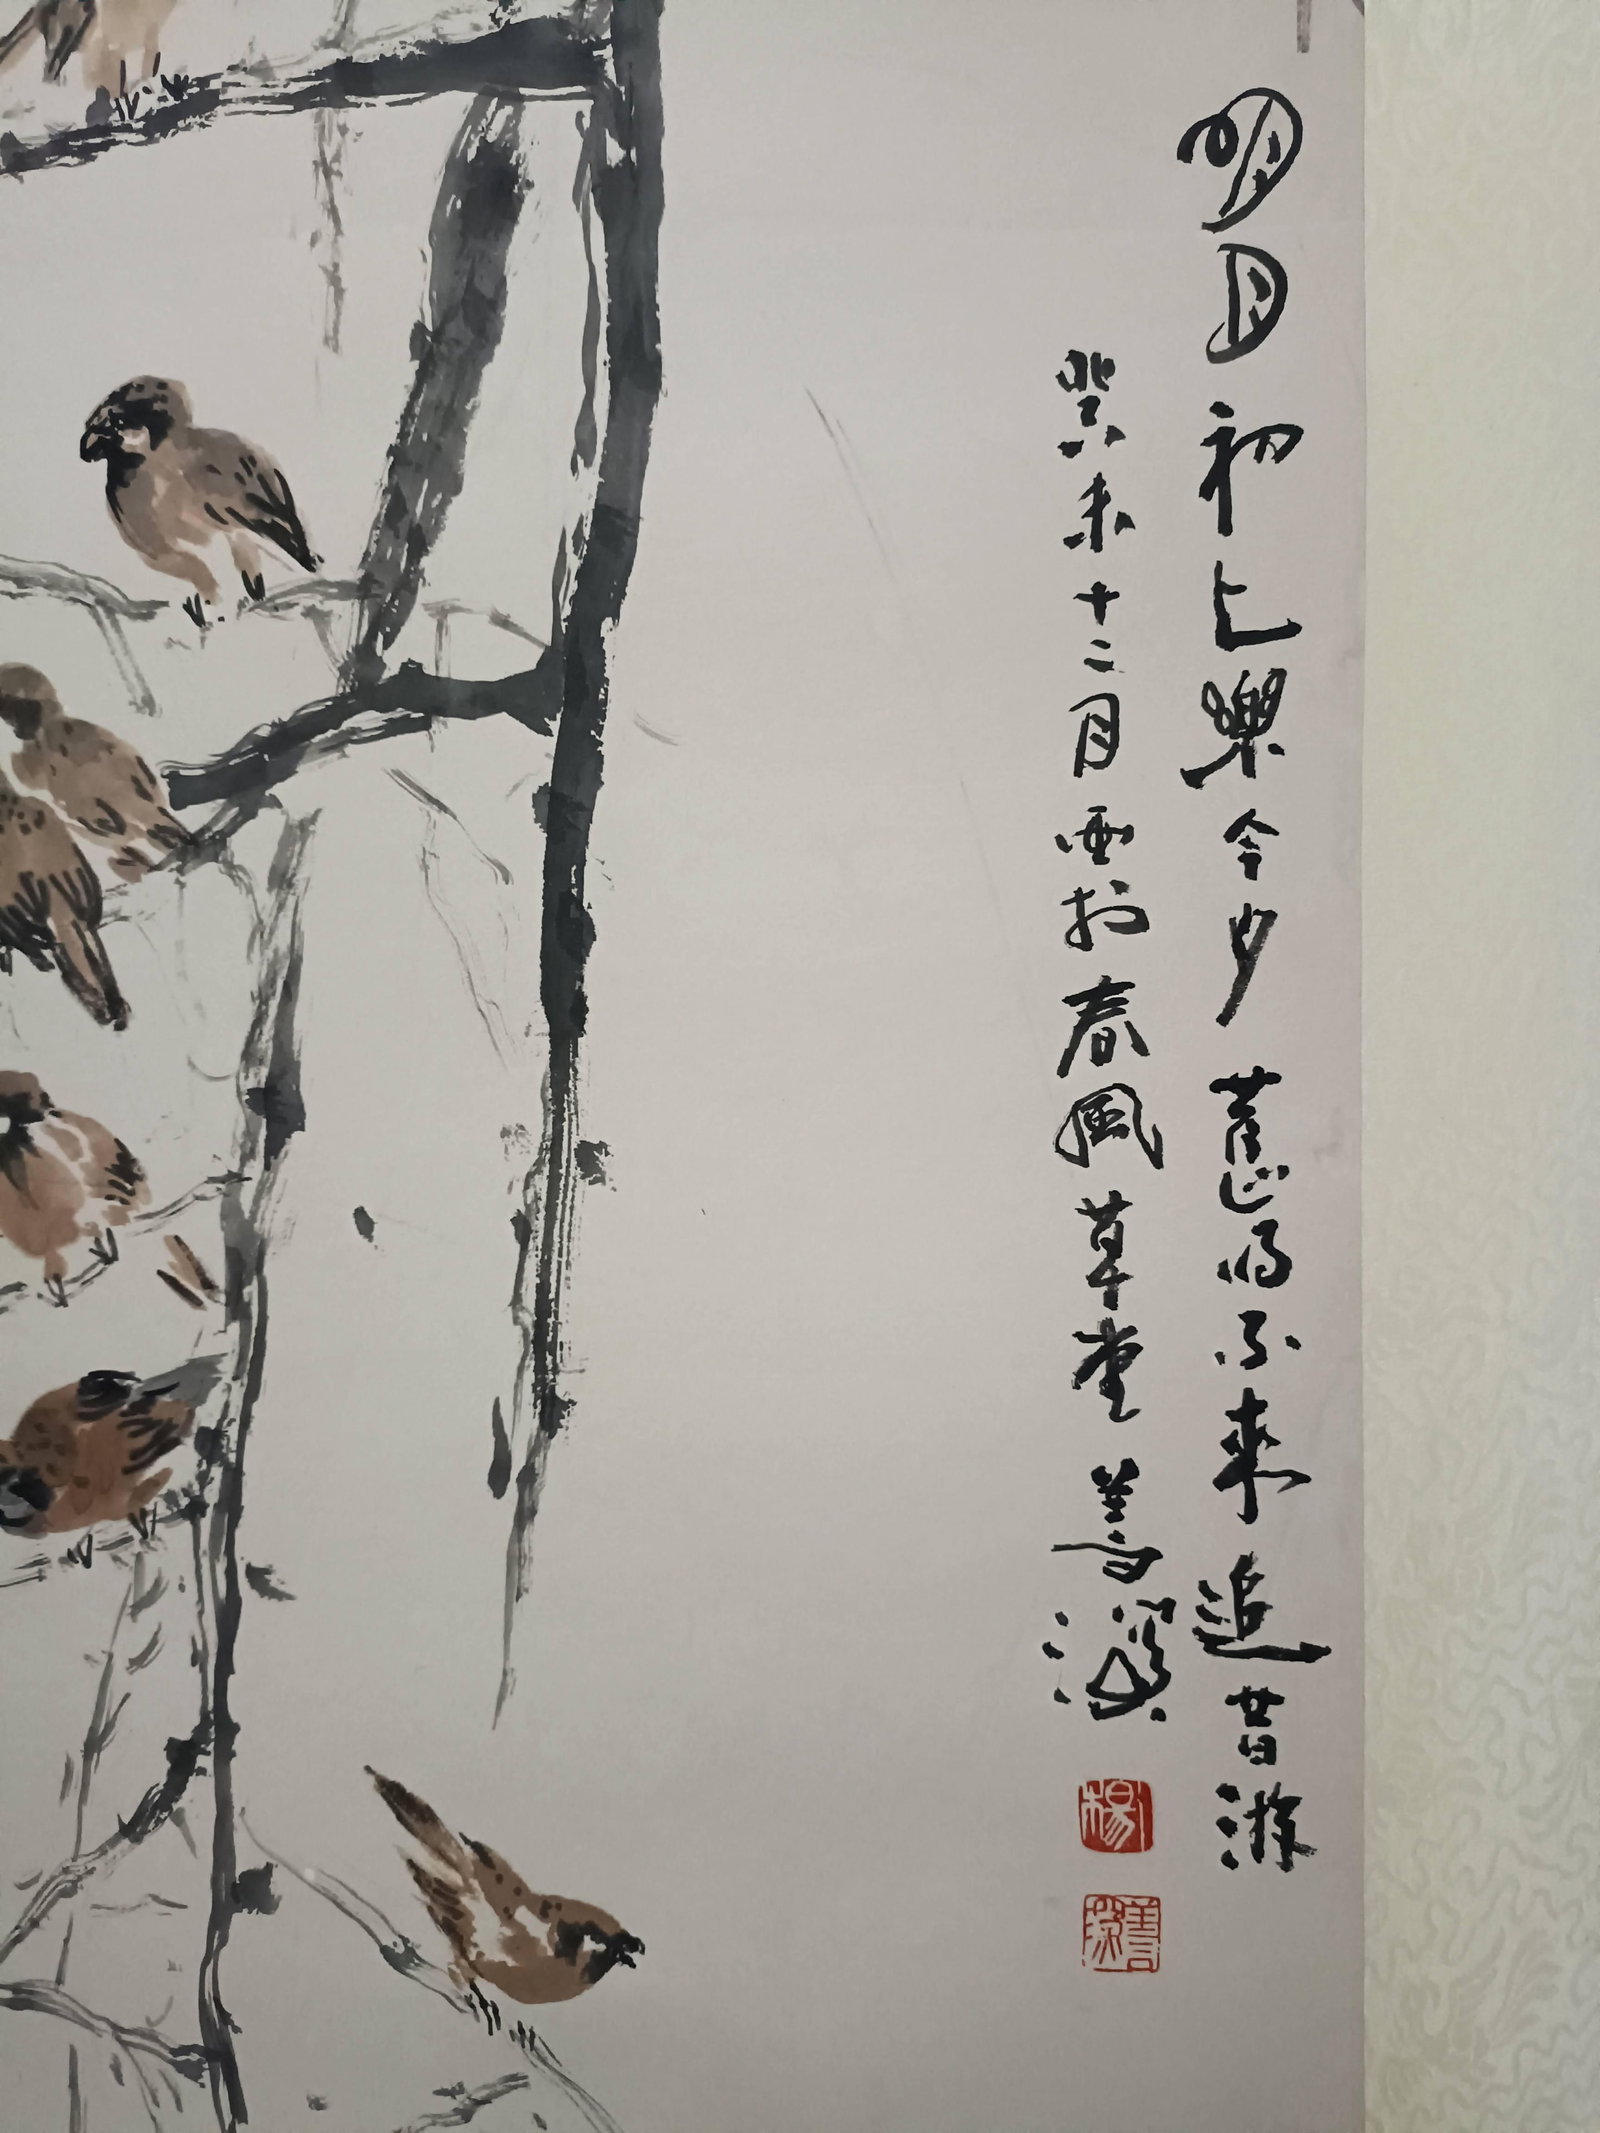 明月初上樂今夕舊雨不來追昔游
癸未十二月畫於春風草堂善深
楊
善深